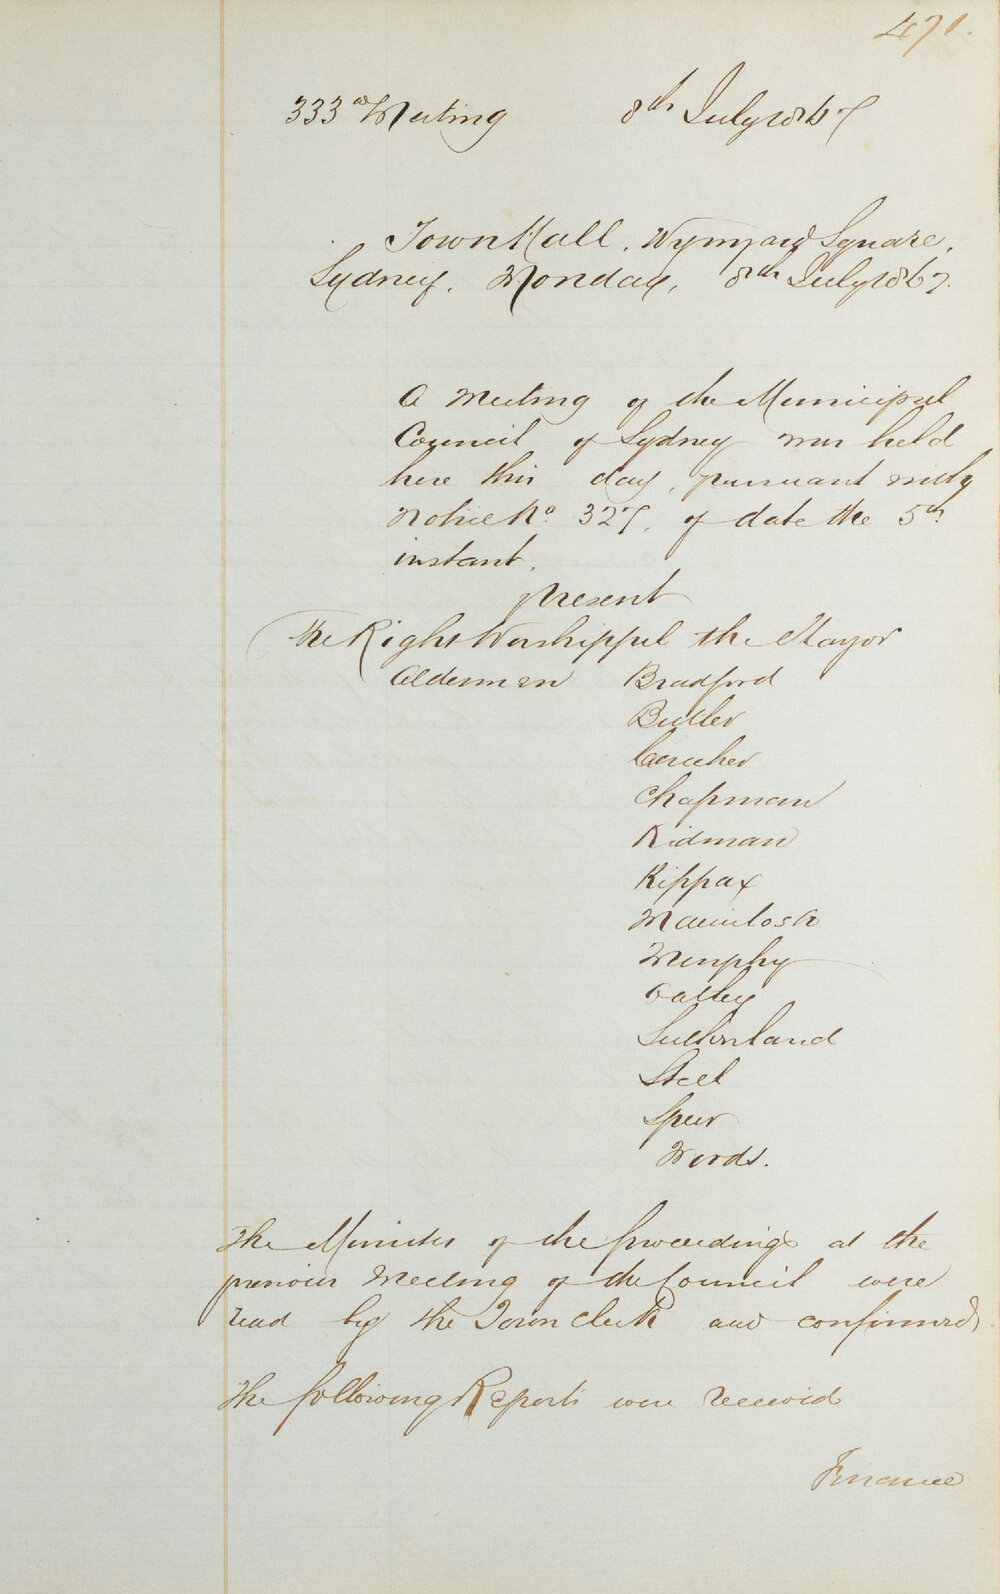 471.
333rd Meeting 8th July 1867
Town Hall, Wynyard Square,
Sydney, Monday, 8th July 1867.
A Meeting of the Municipal
Council of Sydney was held
here this day, pursuant with
Notice No. 327, of date the 5th
instant.
present
The Right Worshipful the Mayor
Aldermen Bradford
Butler
Caraher
Chapman
Kidman
Kippax
Macintosh
Murphy
Oatley
Sutherland
Steel
Speer
Woods.
The Minutes of the proceedings at the
previous Meeting of the Council were
read by the Town Clerk and confirmed,
The following Reports were received
Finance